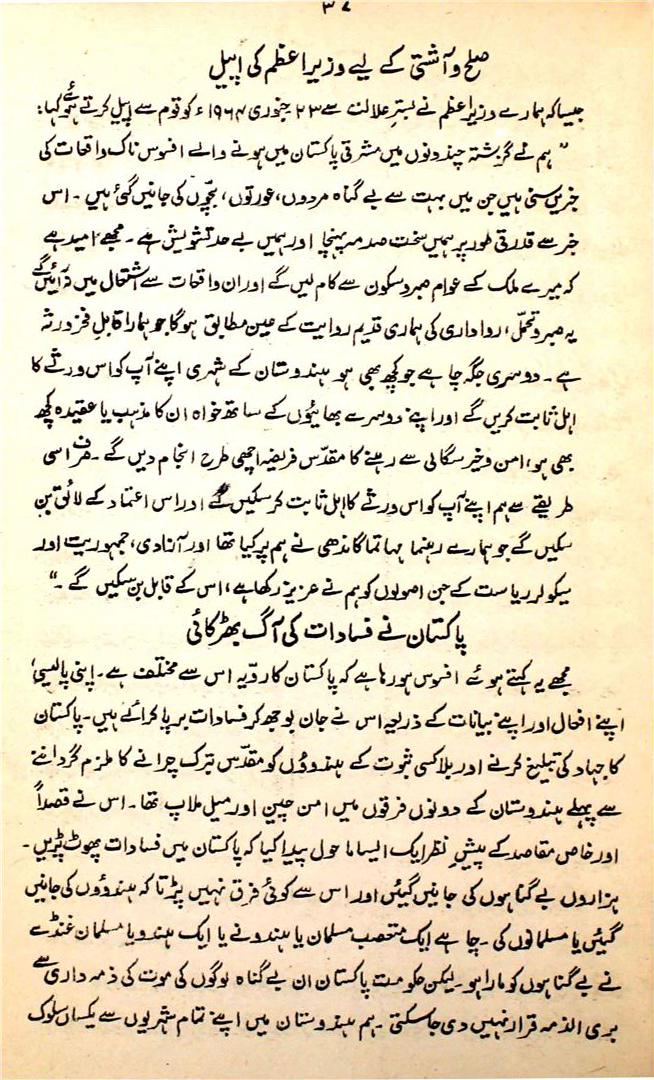 ۳۷
صلح و آشتی کے لیے وزیر اعظم کی اپیل
جیسا کہ ہمارے وزیر اعظم نے بسترِ علالت سے ۲۳ جنوری ۱۹۶۴ء کو قوم سے اپیل کرتے ہوئے کہا:
"ہم نے گزشتہ چند دنوں میں مشرقی پاکستان میں ہونے والے افسوس ناک واقعات کی
خبریں سنی ہیں جن میں بہت سے بے گناہ مردوں، عورتوں، بچّوں کی جانیں گئی ہیں ۔ اس
خبر سے قدرتی طور پر ہمیں سخت صدمہ پہنچا اور ہمیں بے حد تشویش ہے ۔ مجھے امید ہے
کہ میرے ملک کے عوام صبر و سکون سے کام لیں گے اور ان واقعات سے اشتعال میں نہ آئیں گے
یہ صبر و تحمّل، رواداری کی ہماری قدیم روایت کے عین مطابق ہوگا جو ہمارا قابلِ فخر ورثہ
ہے ۔ دوسری جگہ چاہے جو کچھ بھی ہو ہندوستان کے شہری اپنے آپ کو اس ورثے کا
اہل ثابت کریں گے اور اپنے دوسرے بھائیوں کے ساتھ خواہ ان کا مذہب یا عقیدہ کچھ
بھی ہو، امن و خیر سگالی سے رہنے کا مقدّس فریضہ اچھی طرح انجام دیں گے ۔ صرف اسی
طریقے سے ہم اپنے آپ کو اس ورثے کا اہل ثابت کر سکیں گے اور اس اعتماد کے لائق بن
سکیں گے جو ہمارے رہنما مہاتما گاندھی نے ہم پر کیا تھا اور آزادی، جمہوریت اور
سیکولر ریاست کے جن اصولوں کو ہم نے عزیز رکھا ہے، اس کے قابل بن سکیں گے ۔"
پاکستان نے فسادات کی آگ بھڑکائی
مجھے یہ کہتے ہوئے افسوس ہو رہا ہے کہ پاکستان کا رویہ اس سے مختلف ہے ۔ اپنی پالیسی،
اپنے افعال اور اپنے بیانات کے ذریعہ اس نے جان بوجھ کر فسادات برپا کرائے ہیں ۔ پاکستان
کا جہاد کی تبلیغ کرنے اور بلا کسی ثبوت کے ہندوؤں کو مقدّس تبرک چرانے کا ملزم گرداننے
سے پہلے ہندوستان کے دونوں فرقوں میں امن چین اور میل ملاپ تھا ۔ اس نے قصداً
اور خاص مقاصد کے پیشِ نظر ایک ایسا ماحول پیدا کیا کہ پاکستان میں فسادات پھوٹ پڑیں ۔
ہزاروں بے گناہوں کی جانیں گئیں اور اس سے کوئی فرق نہیں پڑتا کہ ہندوؤں کی جانیں
گئیں یا مسلمانوں کی ۔ چاہے ایک متعصب مسلمان یا ہندو نے یا ایک ہندو یا مسلمان غنڈے
نے بے گناہوں کو مارا ہو ۔ لیکن حکومت پاکستان ان بے گناہ لوگوں کی موت کی ذمہ داری سے
بری الذمہ قرار نہیں دی جا سکتی ۔ ہم ہندوستان میں اپنے تمام شہریوں سے یکساں سلوک